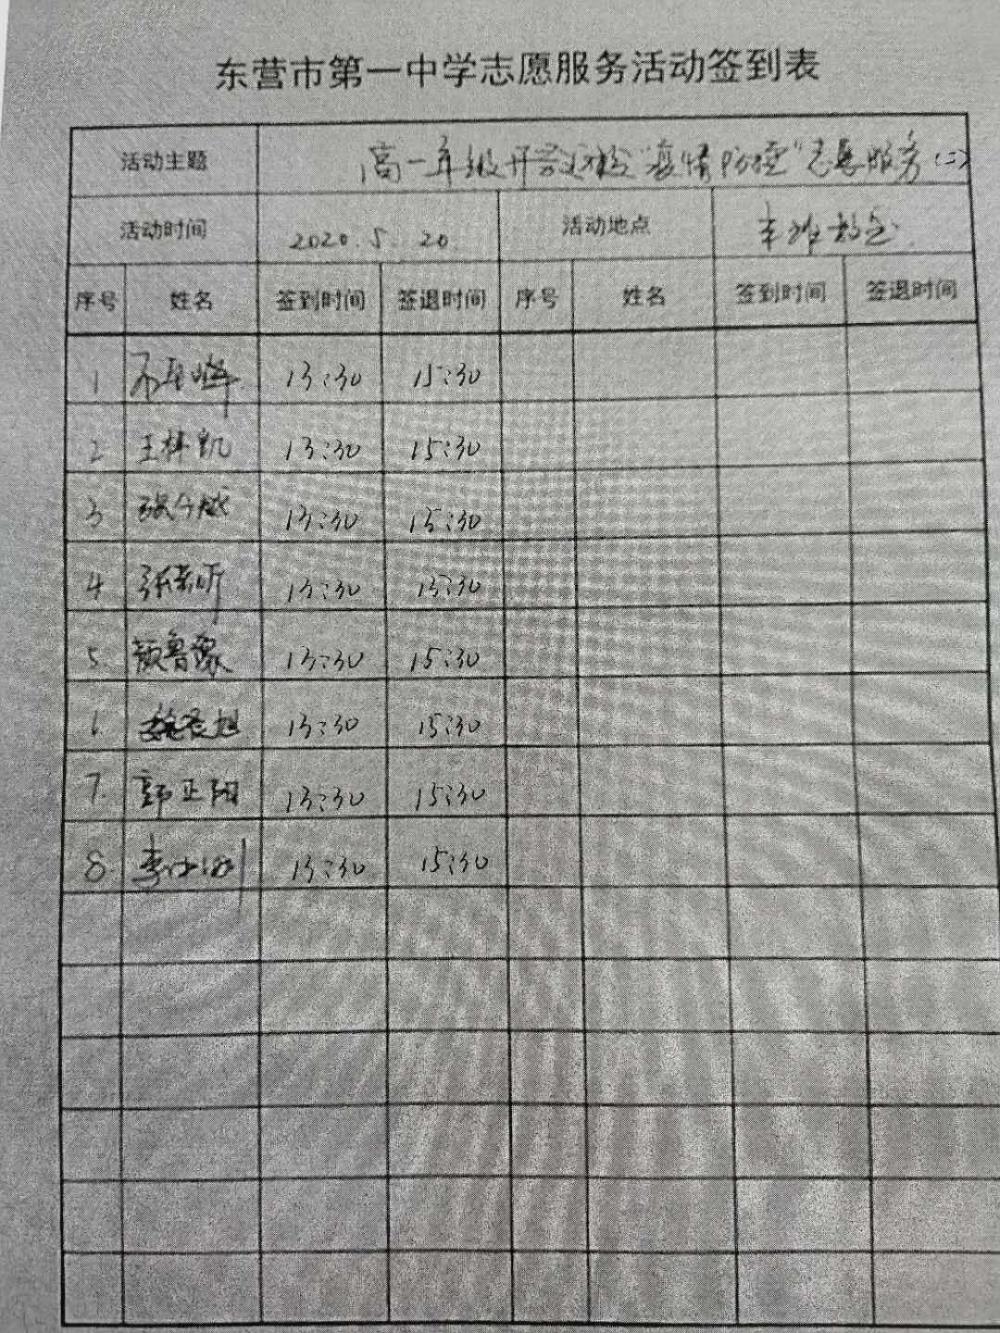 东营市第一中学志愿服务活动签到表
活动主题 高一年级开学返校"疫情防控"志愿服务(二)
活动时间 2020.5.20 活动地点
序号 姓名 签到时间 签退时间 序号 姓名 签到时间 签退时间
1 13:30 15:30
2 王林凯 13:30 15:30
3 13:30 15:30
4 13:30 15:30
5 颜鲁豫 13:30 15:30
6 13:30 15:30
7. 郭正阳 13:30 15:30
8. 13:30 15:30